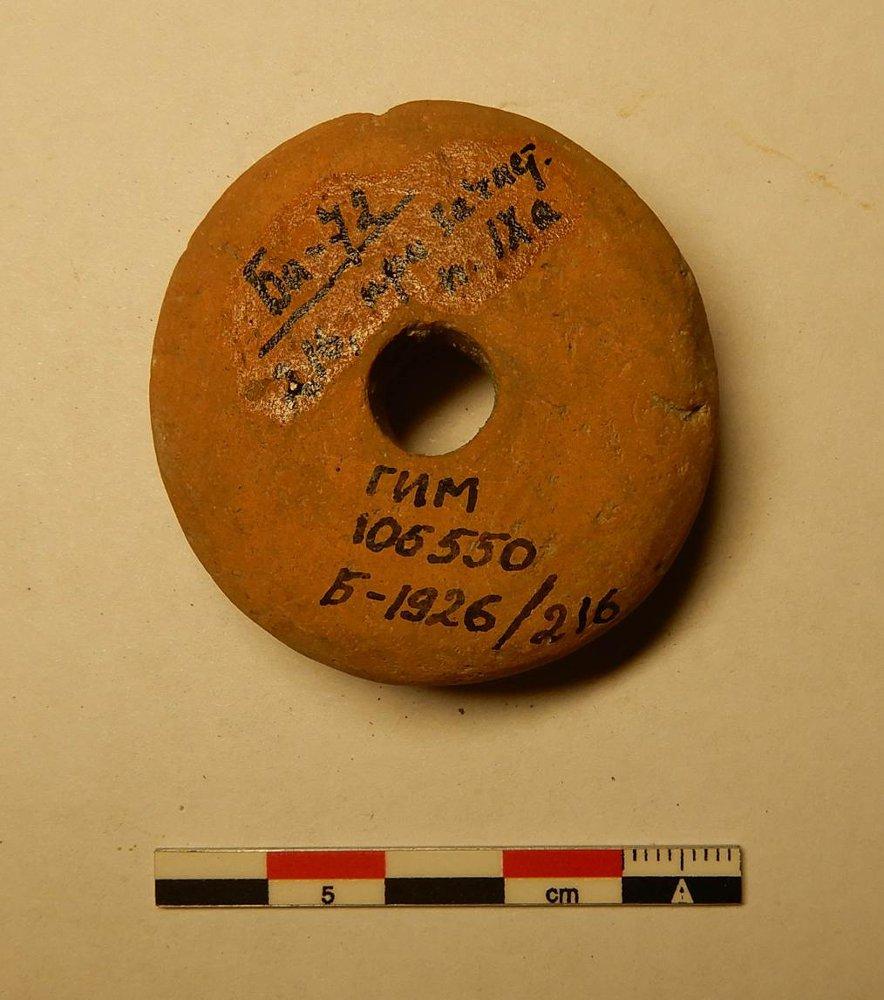 Би-72
при зачист.
п. IXа
ГИМ
106550
Б-1926/216
5 cm